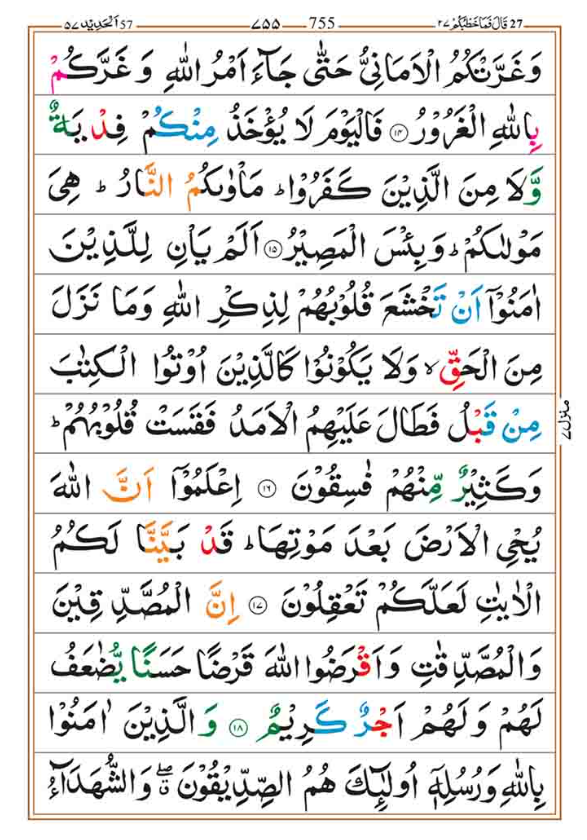 27 قَالَ فَمَا خَطْبُكُمْ ٢٧ 755 ٧٥٥ 57 اَلْحَدِيْد ٥٧
وَغَرَّتْكُمُ الْاَمَانِیُّ حَتّٰی جَآءَ اَمْرُ اللّٰهِ وَ غَرَّكُمْ
بِاللّٰهِ الْغَرُوْرُ ۝۱۴ فَالْيَوْمَ لَا يُؤْخَذُ مِنْكُمْ فِدْيَةٌ
وَّلَا مِنَ الَّذِيْنَ كَفَرُوْا ؕ مَاْوٰىكُمُ النَّارُ ؕ هِیَ
مَوْلٰىكُمْ ؕ وَبِئْسَ الْمَصِيْرُ ۝۱۵ اَلَمْ يَاْنِ لِلَّذِيْنَ
اٰمَنُوْۤا اَنْ تَخْشَعَ قُلُوْبُهُمْ لِذِكْرِ اللّٰهِ وَمَا نَزَلَ
مِنَ الْحَقِّ ۙ وَلَا يَكُوْنُوْا كَالَّذِيْنَ اُوْتُوا الْكِتٰبَ
مِنْ قَبْلُ فَطَالَ عَلَيْهِمُ الْاَمَدُ فَقَسَتْ قُلُوْبُهُمْ ؕ
وَكَثِيْرٌ مِّنْهُمْ فٰسِقُوْنَ ۝۱۶ اِعْلَمُوْۤا اَنَّ اللّٰهَ
يُحْیِ الْاَرْضَ بَعْدَ مَوْتِهَا ؕ قَدْ بَيَّنَّا لَكُمُ
الْاٰيٰتِ لَعَلَّكُمْ تَعْقِلُوْنَ ۝۱۷ اِنَّ الْمُصَّدِّقِيْنَ
وَالْمُصَّدِّقٰتِ وَاَقْرَضُوا اللّٰهَ قَرْضًا حَسَنًا يُّضٰعَفُ
لَهُمْ وَلَهُمْ اَجْرٌ كَرِيْمٌ ۝۱۸ وَالَّذِيْنَ اٰمَنُوْا
بِاللّٰهِ وَرُسُلِهٖۤ اُولٰٓئِكَ هُمُ الصِّدِّيْقُوْنَ ۖۗ وَالشُّهَدَآءُ
منزل ٧